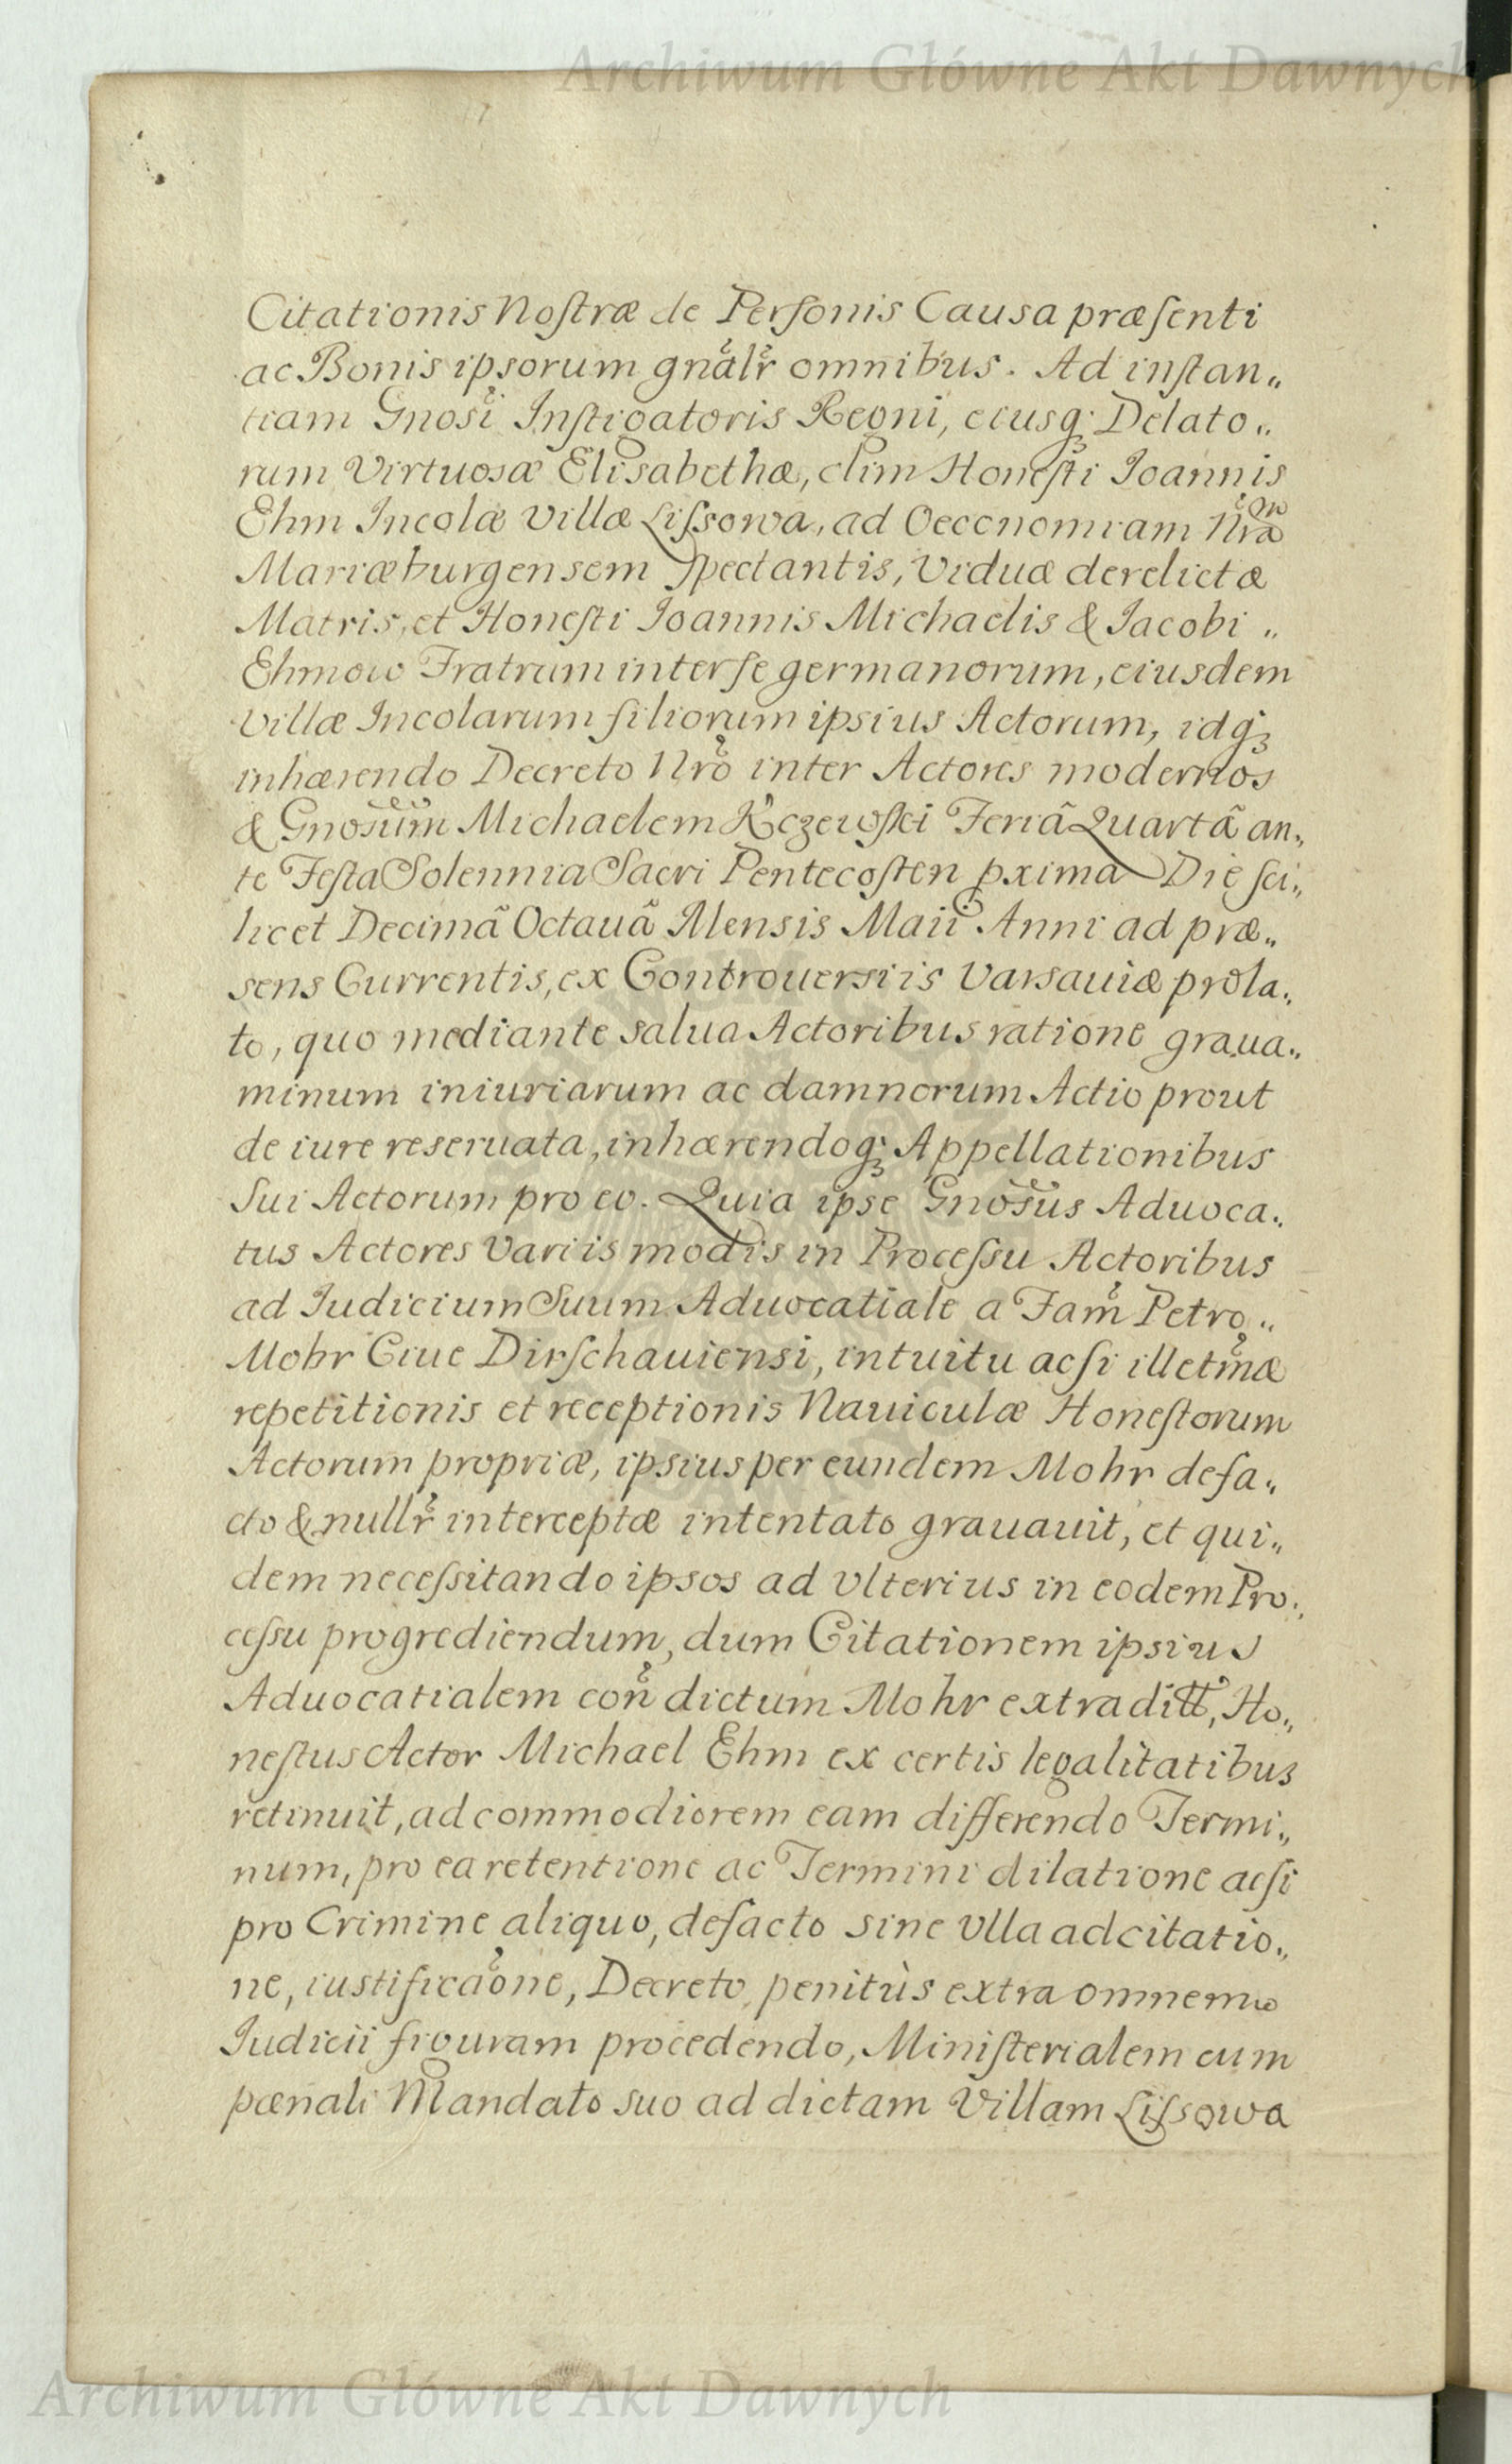 Archiwum Główne Akt Dawnych
Citationis Noſtræ de Perſonis Causa præſenti
ac Bonis ipsorum gnãlr omnibus. Ad inſtan„
tiam Gnosi Inſtigatoris Regni, eiusq; Delato„
rum Virtuosæ Elisabethæ, olim Honeſti Ioannis
Ehm Incolæ Villæ Liſsowa, ad Oeconomiam Nram
Mariæburgensem Spectantis, Viduæ derelictæ
Matris, et Honeſti Ioannis Michaelis & Iacobi „
Ehmow Fratrum inter ſe germanorum, eiusdem
Villæ Incolarum filiorum ipsius Actorum, idq;
inhærendo Decreto Nro inter Actores modernos
& Gnosum Michaelem Kczewſki Feriâ Quartâ an„
te Feſta Solennia Sacri Pentecoſten pxima Die ſci„
licet Decimâ Octauâ Mensis Maii Anni ad præ„
sens Currentis, ex Controuersiis Varsauiæ prola„
to, quo mediante salua Actoribus ratione graua„
minum iniuriarum ac damnorum Actio prout
de iure reseruata, inhærendoq; Appellationibus
Sui Actorum pro eo. Quia ipse Gnosus Aduoca„
tus Actores Variis modis in Proceſsu Actoribus
ad Iudicium Suum Aduocatiale a Fam Petro „
Mohr Ciue Dirſchauiensi, intuitu acſi illetmæ
repetitionis et receptionis Nauiculæ Honeſtorum
Actorum propriæ, ipsius per eundem Mohr defa„
cto & nullr interceptæ intentato grauauit, et qui„
dem neceſsitando ipsos ad Vlterius in eodem Pro„
ceſsu progrediendum, dum Citationem ipsius
Aduocatialem con dictum Mohr extraditt, Ho„
neſtus Actor Michael Ehm ex certis legalitatibus
retinuit, ad commodiorem eam differendo Termi„
num, pro ea retentione ac Termini dilatione acſi
pro Crimine aliquo, defacto sine Vlla adcitatio„
ne, iustificaone, Decreto penitùs extra omnem
Iudicii figuram procedendo, Miniſterialem cum
pœnali Mandato suo ad dictam Villam Liſsowa
Archiwum Główne Akt Dawnych